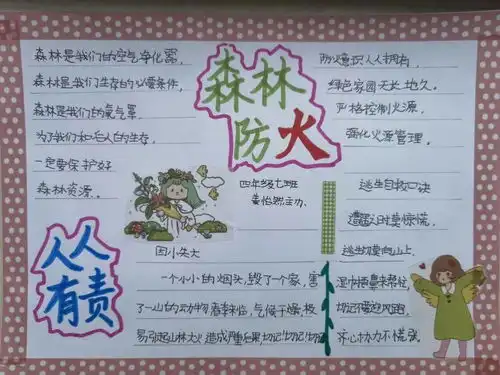 森林是我们的空气净化器,
森林是我们生存的必需条件,
森林是我们的氧气罩
为了我们和后人的生存,
一定要保护好
森林资源.
森林
防火
四年级七班
人人
有责
因小失大
一个小小的烟头,毁了一个家,害
了一山的动物春季来临,气候干燥,极
易引起山林大火造成严重后果,切记切记切记
防火意识人人拥有,
绿色家园天长地久.
严格控制火源,
强化火源管理.
逃生自救口诀
遭遇火时莫惊慌,
逃生切莫向山上,
湿巾捂鼻来帮忙,
切记不要迎风跑,
齐心协力不慌张.